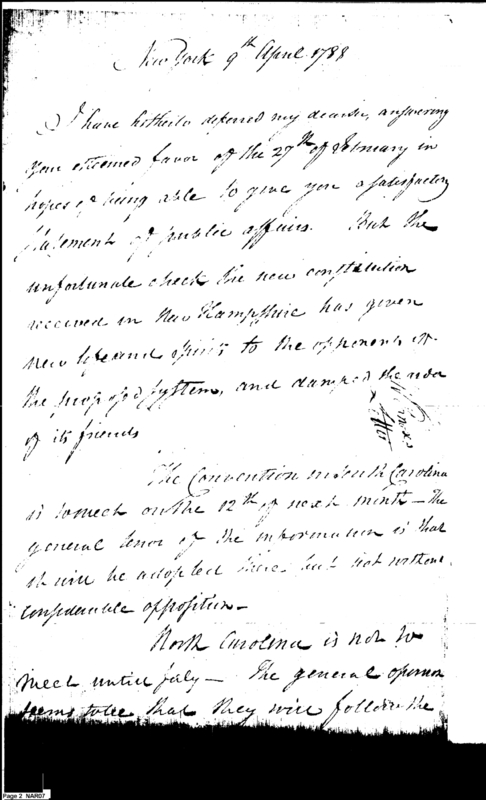 New York 9th April 1788
I have hitherto deferred my dear sir, answering
your esteemed favor of the 27th of February in
hopes of being able to give you a satisfactory
statement of public affairs. But the
unfortunate check the new constitution
received in New Hampshire has given
new life and spirits to the opponents of
the proposed system, and damped the ardor
of its friends
The Convention in South Carolina
is to meet on the 12th of next month — The
general tenor of the information is that
it will be adopted there but not without
considerable opposition —
North Carolina is not to
meet until July — The general opinion
seems to be that they will follow the
Page 2 NAR07